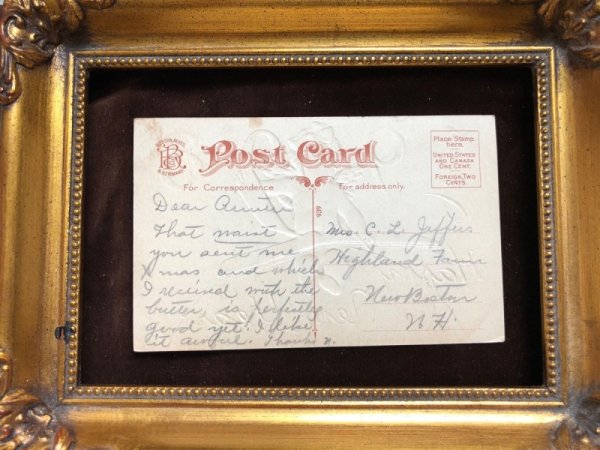 BOSTON, MASS.
& GERMANY
Post Card
Place Stamp
here.
UNITED STATES
AND CANADA
ONE CENT.
FOREIGN, TWO
CENTS.
For Correspondence
For address only.
Dear Auntie
That waist
you sent me
Xmas and which
I received with the
butter, is perfectly
good yet. I like
it awful. Thanks
Mrs. C. L. Jeffers
Highland Farm
New Boston
N H.